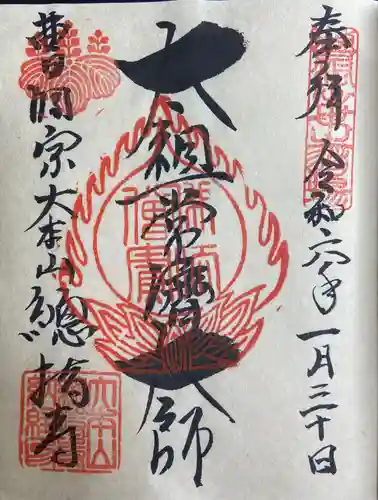 奉拝 令和六年 一月三十日
太祖常濟大師
曹洞宗大本山總持寺